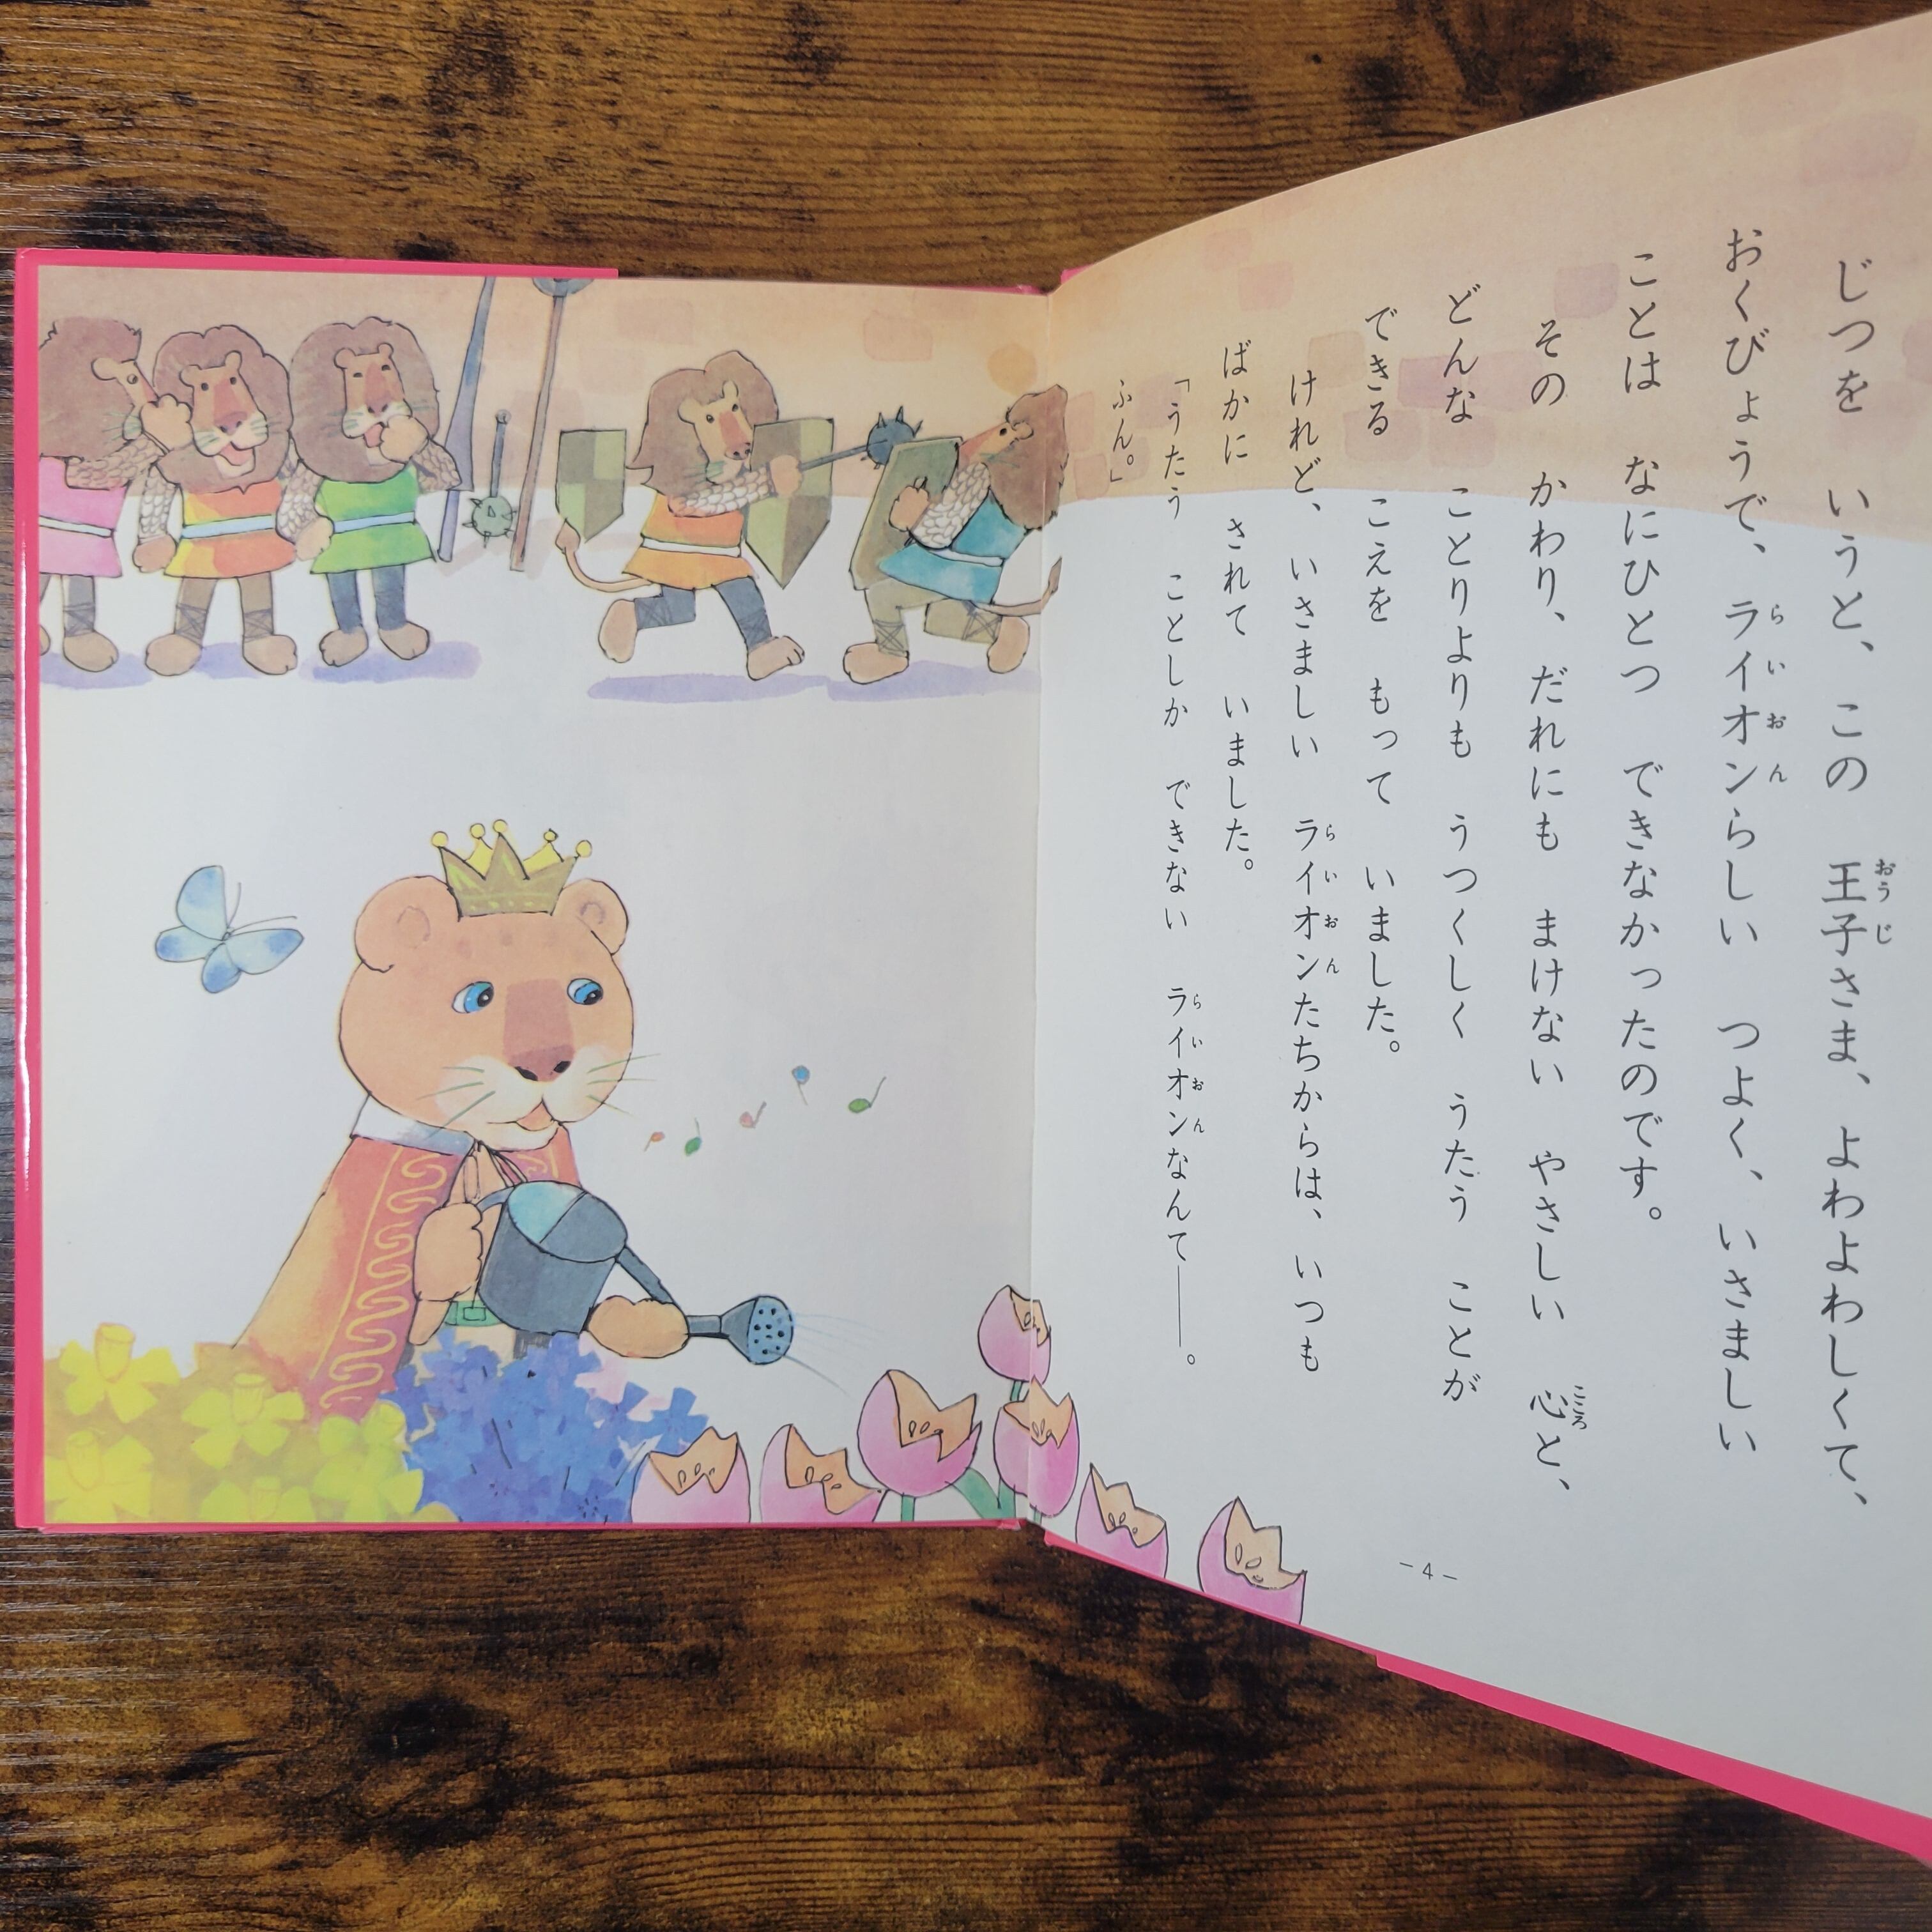 じつを いうと、この 王子さま、よわよわしくて、
おうじ
おくびょうで、ライオンらしい つよく、いさましい
らいおん
ことは なにひとつ できなかったのです。
その かわり、だれにも まけない やさしい 心と、
こころ
どんな ことりよりも うつくしく うたう ことが
できる こえを もって いました。
けれど、いさましい ライオンたちからは、いつも
らいおん
ばかに されて いました。
「うたう ことしか できない ライオンなんて――。
らいおん
ふん。」
－4－